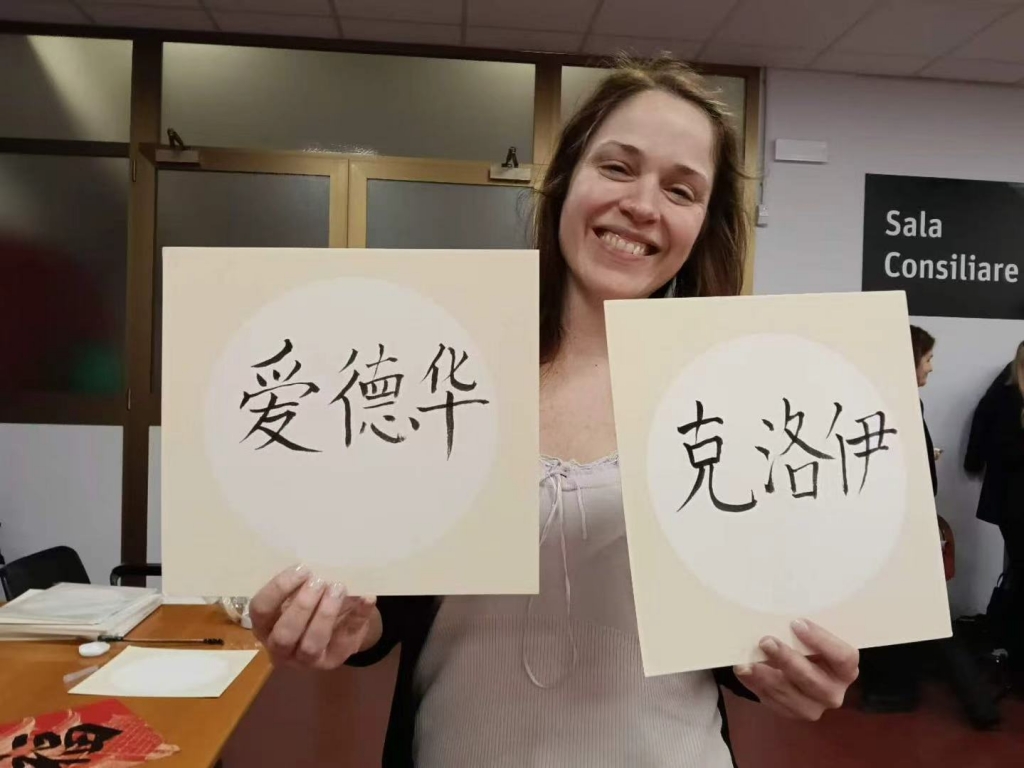 爱德华
克洛伊
Sala
Consiliare